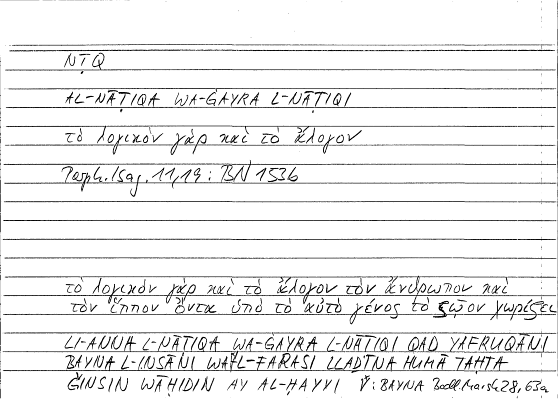 NṬQ
AL-NĀṬIQA WA-ĠAYRA L-NĀṬIQI
τὸ λογικὸν γὰρ καὶ τὸ ἄλογον
Porph. Isag. 11,19: BN 1536
τὸ λογικὸν γὰρ καὶ τὸ ἄλογον τὸν ἄνθρωπον καὶ
τὸν ἵππον ὄντα ὑπὸ τὸ αὐτὸ γένος τὸ ζῷον χωρίζει
LI-ANNA L-NĀṬIQA WA-ĠAYRA L-NĀṬIQI QAD YAFRUQĀNI
BAYNA L-INSĀNI WA-L-FARASI LLAḎĪNA HUMĀ TAḤTA
ǦINSIN WĀḤIDIN AY AL-ḤAYYI BAYNA Bodl. Marsh 28, 63a